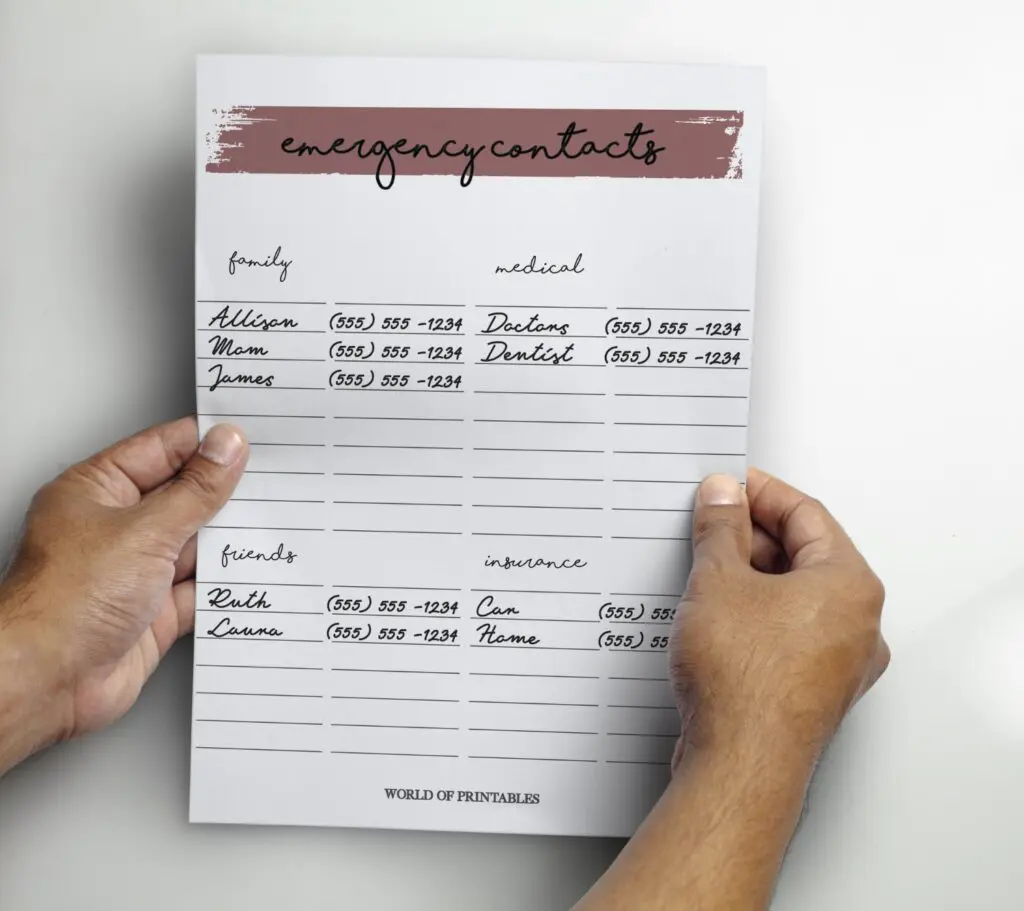 emergency contacts
family medical
Allison (555) 555 -1234 Doctors (555) 555 -1234
Mom (555) 555 -1234 Dentist (555) 555 -1234
James (555) 555 -1234
friends insurance
Ruth (555) 555 -1234 Car (555) 555
Laura (555) 555 -1234 Home (555) 55
WORLD OF PRINTABLES